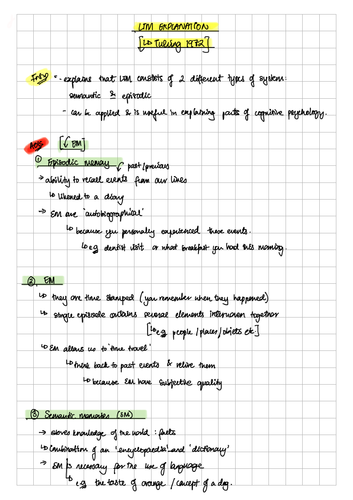 LTM EXPLANATION
[↳ Tulving 1972]
Intro • - explains that LTM consists of 2 different types of system:
semantic & episodic
- can be applied & is useful in explaining parts of cognitive psychology.
[↓ EM]
① Episodic memory ↙ past/previous
→ ability to recall events from our lives
↳ likened to a diary
→ EM are 'autobiographical'
↳ because you personally experienced those events.
↳ e.g dentist visit or what breakfast you had this morning.
② EM
↳ they are time stamped (you remember when they happened)
↳ single episode contains several elements interwoven together
[↳ e.g people / places / objects etc.]
↳ EM allows us to 'time travel'
↳ think back to past events & relive them
↳ because EM have subjective quality
③ Semantic memories (SM)
→ stores knowledge of the world : facts
↳ combination of an 'encyclopaedia' and 'dictionary'
→ SM is necessary for the use of language
↳ e.g the taste of orange / concept of a dog.